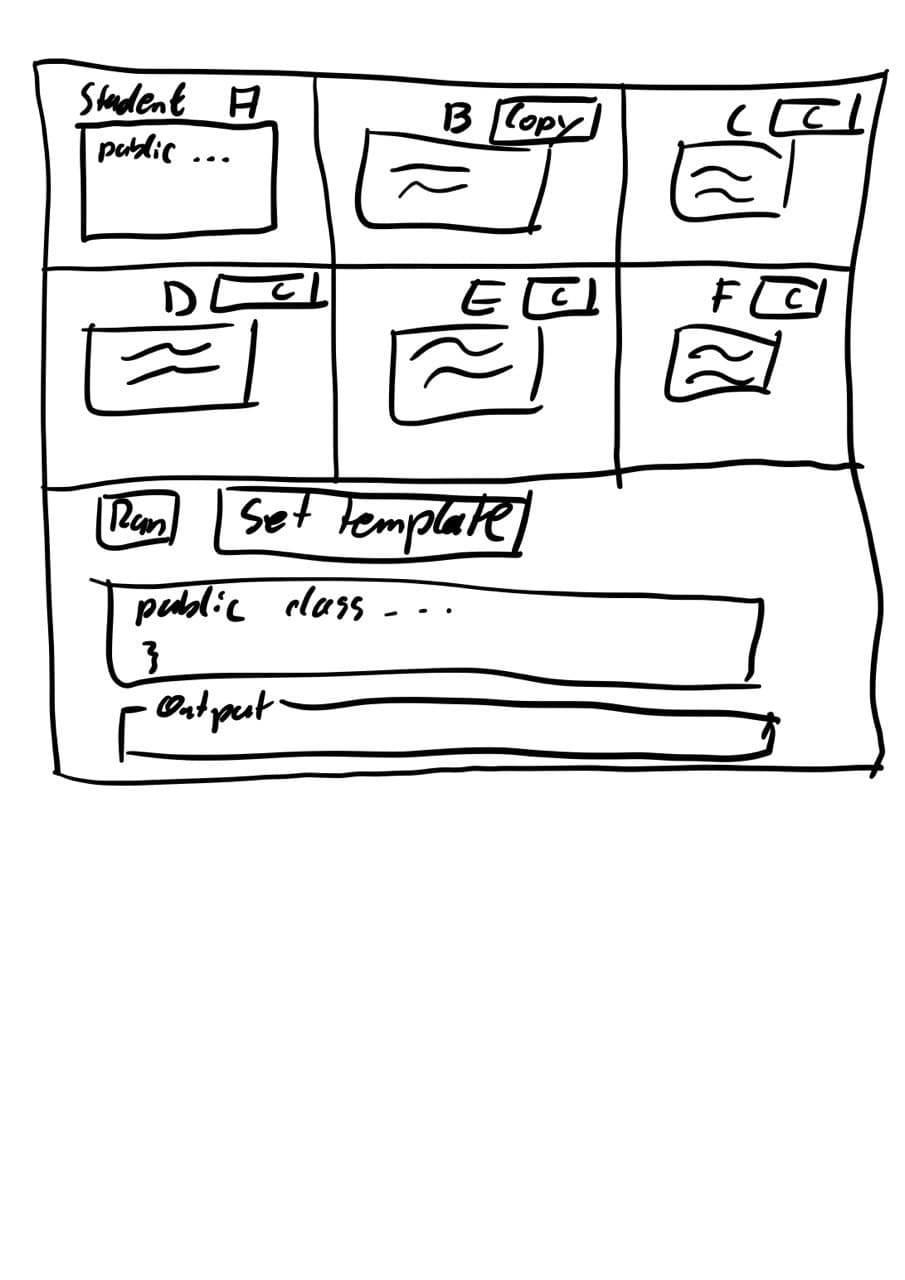 Student A
public ...
B Copy
C C
D C
E C
F C
Run Set template
public class ...
}
Output